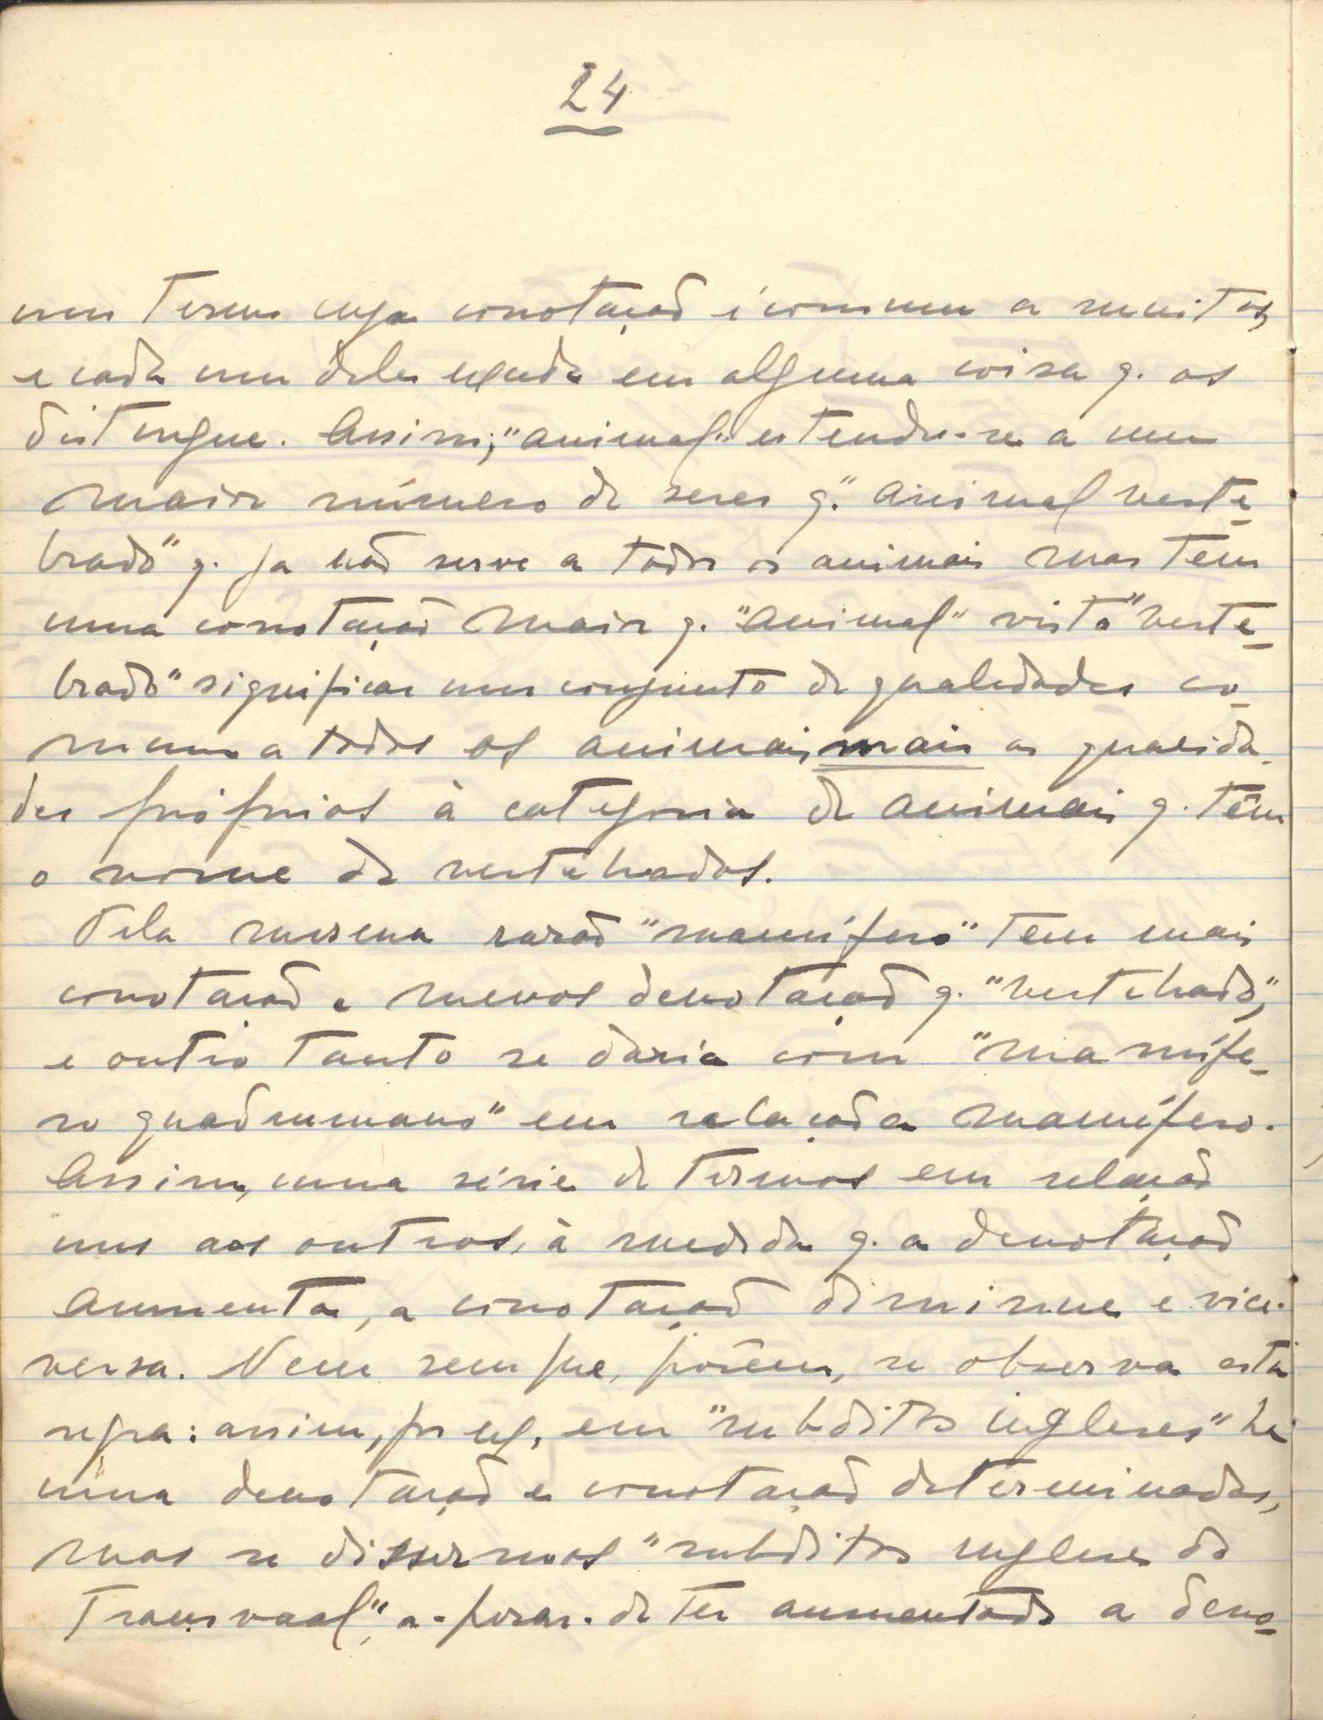 24
um termo cuja conotação é comum a muitos,
e cada um deles exceda em alguma coisa q. os
distingue. Assim, "animal" estende-se a um
maior número de seres q. "animal verte-
brado" q. ja não serve a todos os animais mas tem
uma conotação maior q. "animal" visto "verte-
brado" significar um conjunto de qualidades co-
muns a todos os animais, mais as qualida-
des próprias à categoria de animais q. têm
o nome de vertebrados.
Pela mesma razão "mamífero" tem mais
conotação e menos denotação q. "vertebrado",
e outro tanto se daria com "mamífe-
ro quadrumano" em relação a mamífero.
Assim, numa série de termos em relação
uns aos outros, à medida q. a denotação
aumenta, a conotação diminue e vice-
versa. Nem sempre, porém, se observa esta
regra: assim, por ex., em "subditos ingleses" há
uma denotação e conotação determinadas,
mas se dissermos "subditos ingleses do
Transvaal", a-pesar-de ter aumentado a deno-